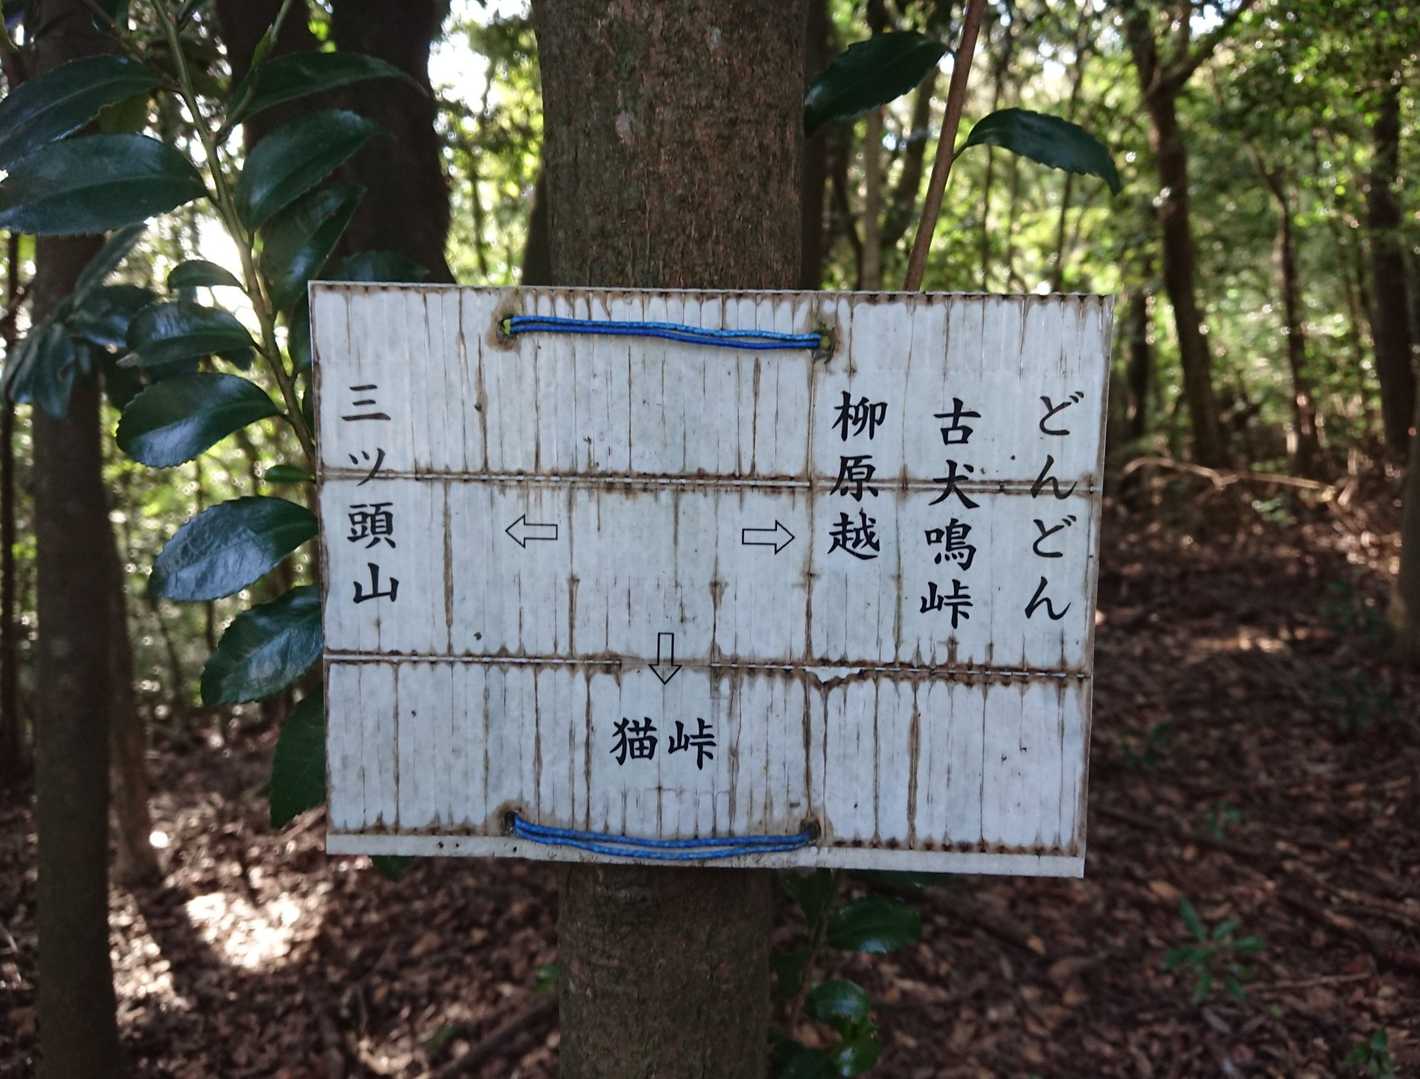 どんどん
古犬鳴峠
柳原越
三ツ頭山
猫峠